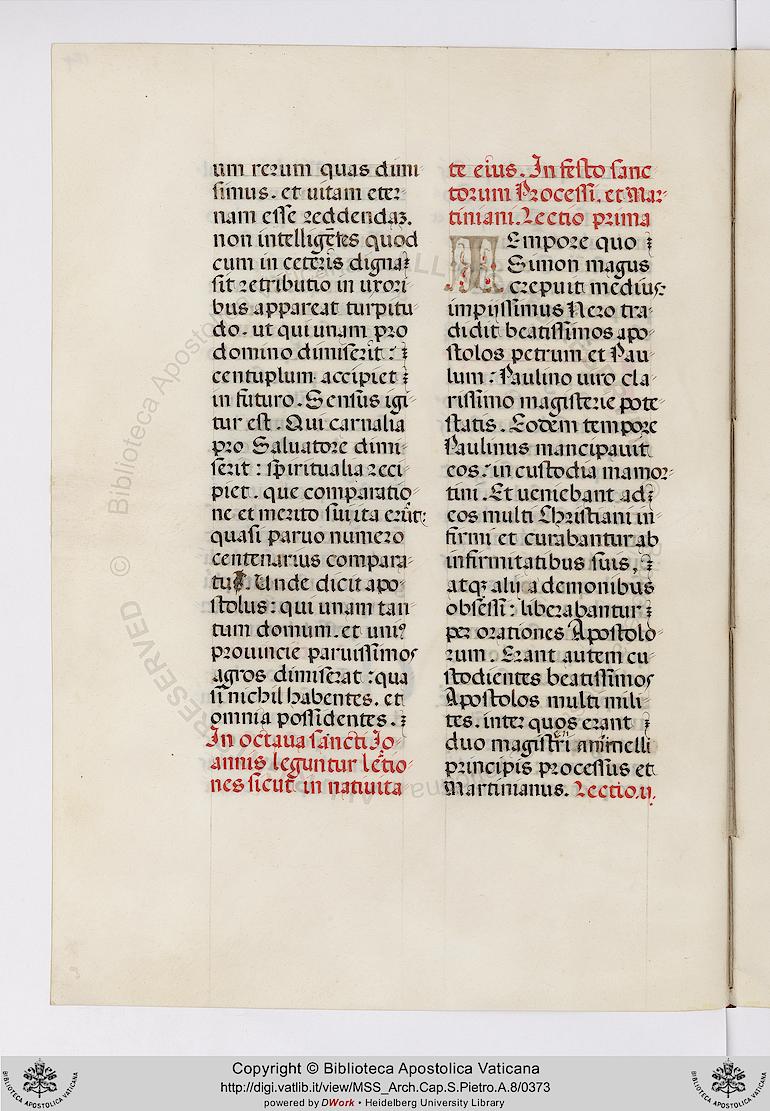 um rerum quas dimi
simus. et uitam eter
nam esse reddendaʒ.
non intelligētes quod
cum in ceteris digna
sit retributio in uxori
bus appareat turpitu
do. ut qui unam pro
domino dimiserit:
centuplum accipiet
in futuro. Sensus igi
tur est. Qui carnalia
pro Saluatore dimi
serit: spiritualia reci
piet. que comparatio
ne et merito sui ita erūt:
quasi paruo numero
centenarius compara
tur. Unde dicit apo
stolus: qui unam tan
tum domum. et uniꝰ
prouincie paruissimos
agros dimiserat: qua
si nichil habentes. et
omnia possidentes.
In octaua sancti Jo
annis leguntur lectio
nes sicut in natiuita
te eius. In festo sanc
torum Processi. et Mar
tiniani. Lectio prima
TEmpore quo
Simon magus
crepuit medius:
impijssimus Nero tra
didit beatissimos apo
stolos petrum et Pau
lum: Paulino uiro cla
rissimo magisterie pote
statis. Eodem tempore
Paulinus mancipauit
eos: in custodia mamor
tini. Et ueniebant ad
eos multi Christiani in
firmi et curabantur ab
infirmitatibus suis,
atqꝫ alii a demonibus
obsessi: liberabantur
per orationes Apostolo
rum. Erant autem cu
stodientes beatissimos
Apostolos multi mili
tes. inter quos erant
duo magistri
principis processus et
Martinianus. Lectio.ij.
Copyright © Biblioteca Apostolica Vaticana
http://digi.vatlib.it/view/MSS_Arch.Cap.S.Pietro.A.8/0373
powered by DWork • Heidelberg University Library